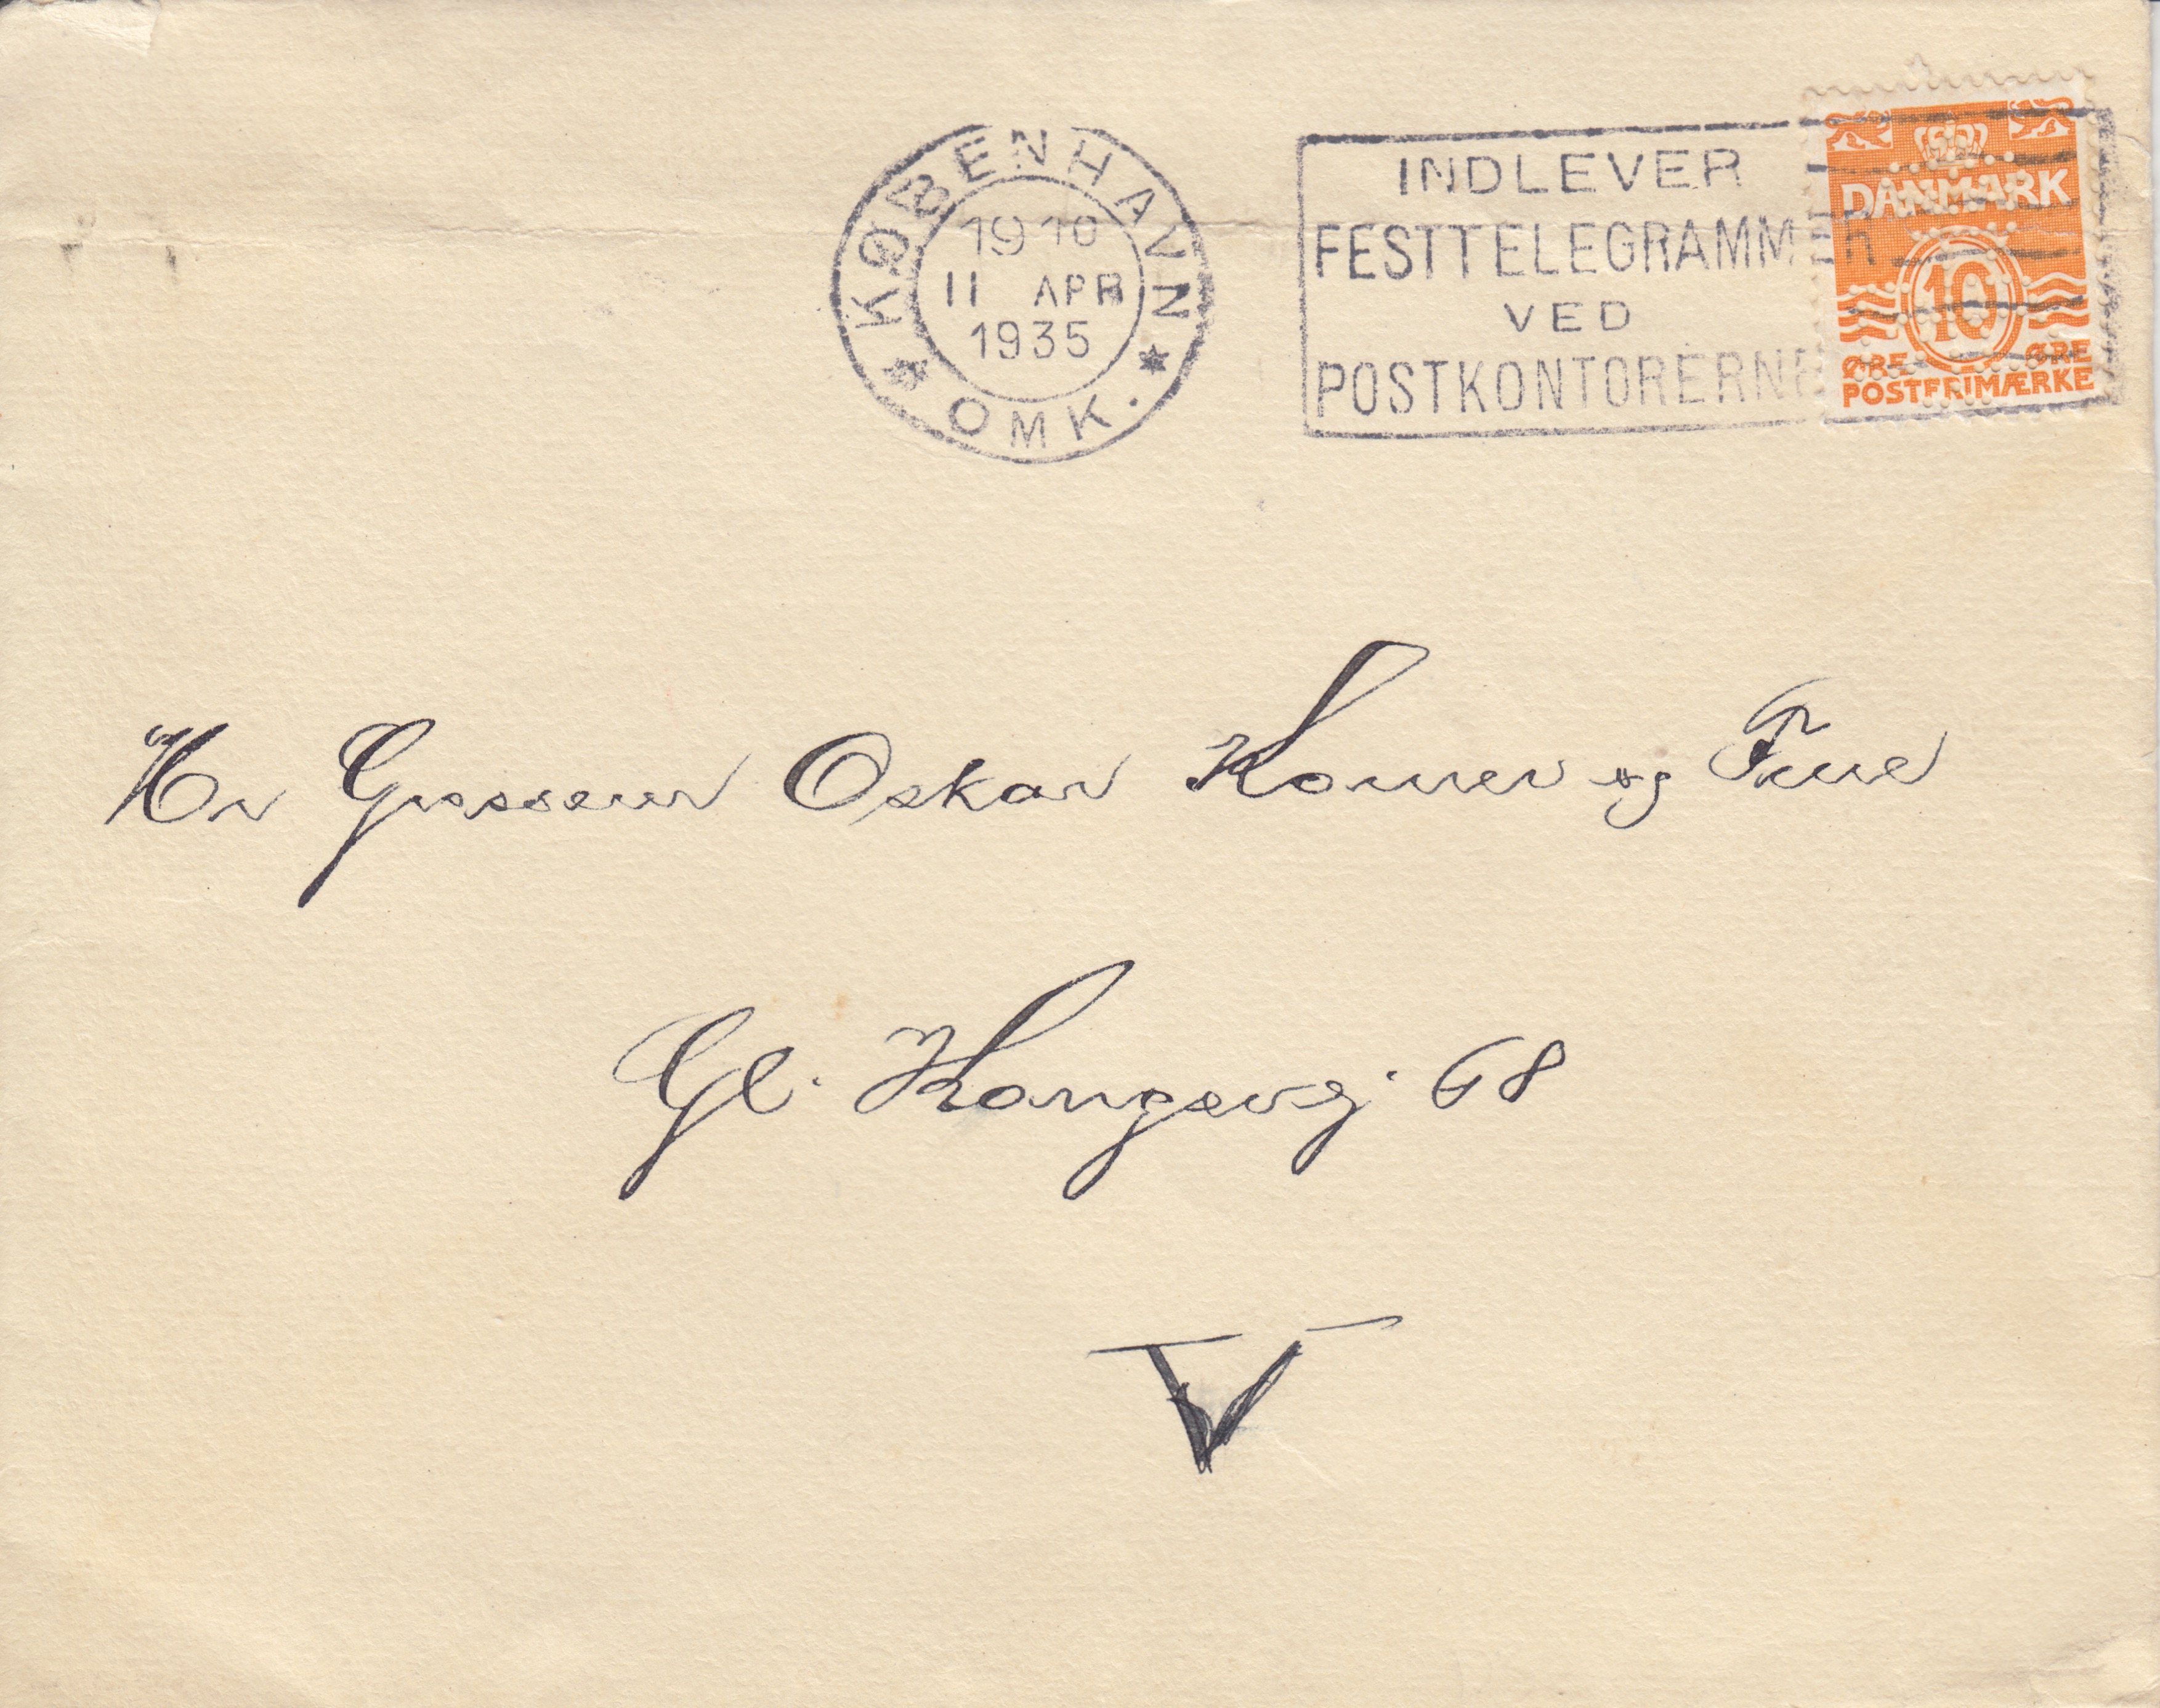 KØBENHAVN
19 10
11 APR
1935
OMK.
INDLEVER
FESTTELEGRAMMER
VED
POSTKONTORERNE
DANMARK
10
ØRE ØRE
POSTFRIMÆRKE
Hr Grosserer Oskar og Frue
Gl. Kongevej. 68
V